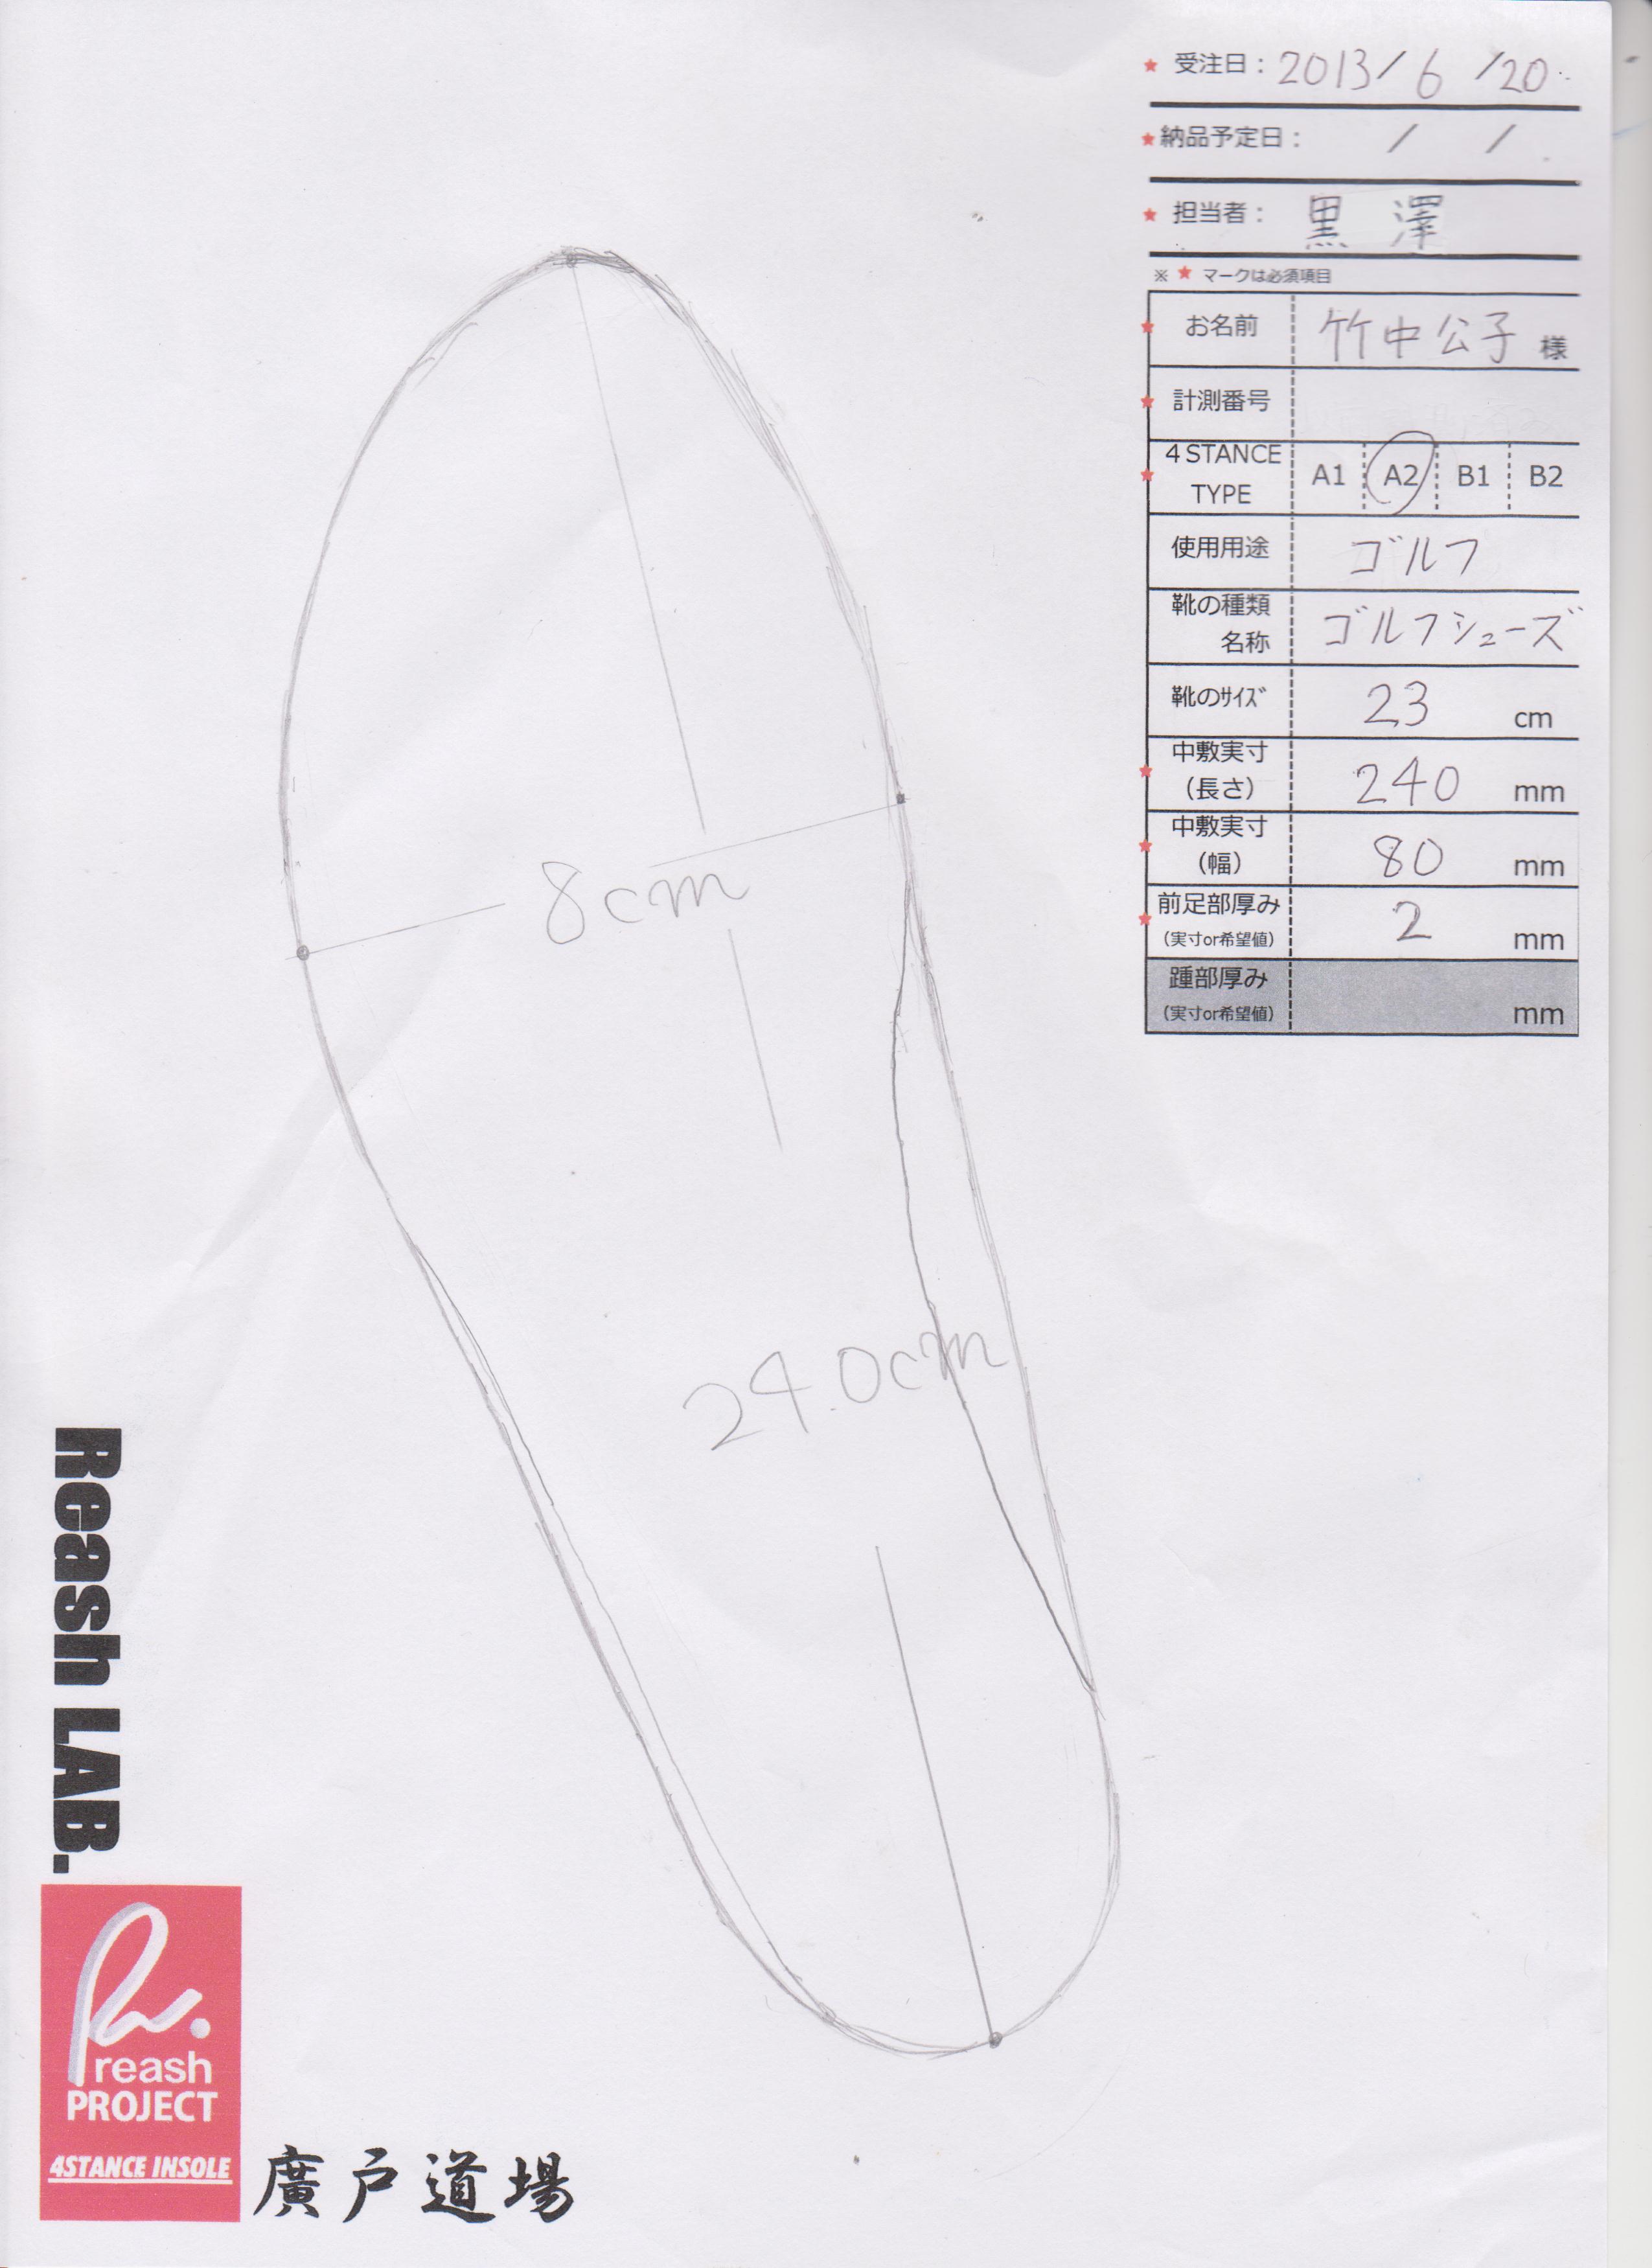 ★ 受注日：2013/6/20
★ 納品予定日： / /
★ 担当者： 黒澤
※ ★ マークは必須項目
★ お名前 竹中公子 様
★ 計測番号
★ 4 STANCE TYPE A1 A2 B1 B2
使用用途 ゴルフ
靴の種類
名称 ゴルフシューズ
靴のｻｲｽﾞ 23 cm
★ 中敷実寸
（長さ） 240 mm
★ 中敷実寸
（幅） 80 mm
★ 前足部厚み
（実寸or希望値） 2 mm
踵部厚み
（実寸or希望値） mm
8cm
24.0cm
Reash LAB.
R.
reash
PROJECT
4STANCE INSOLE
廣戸道場